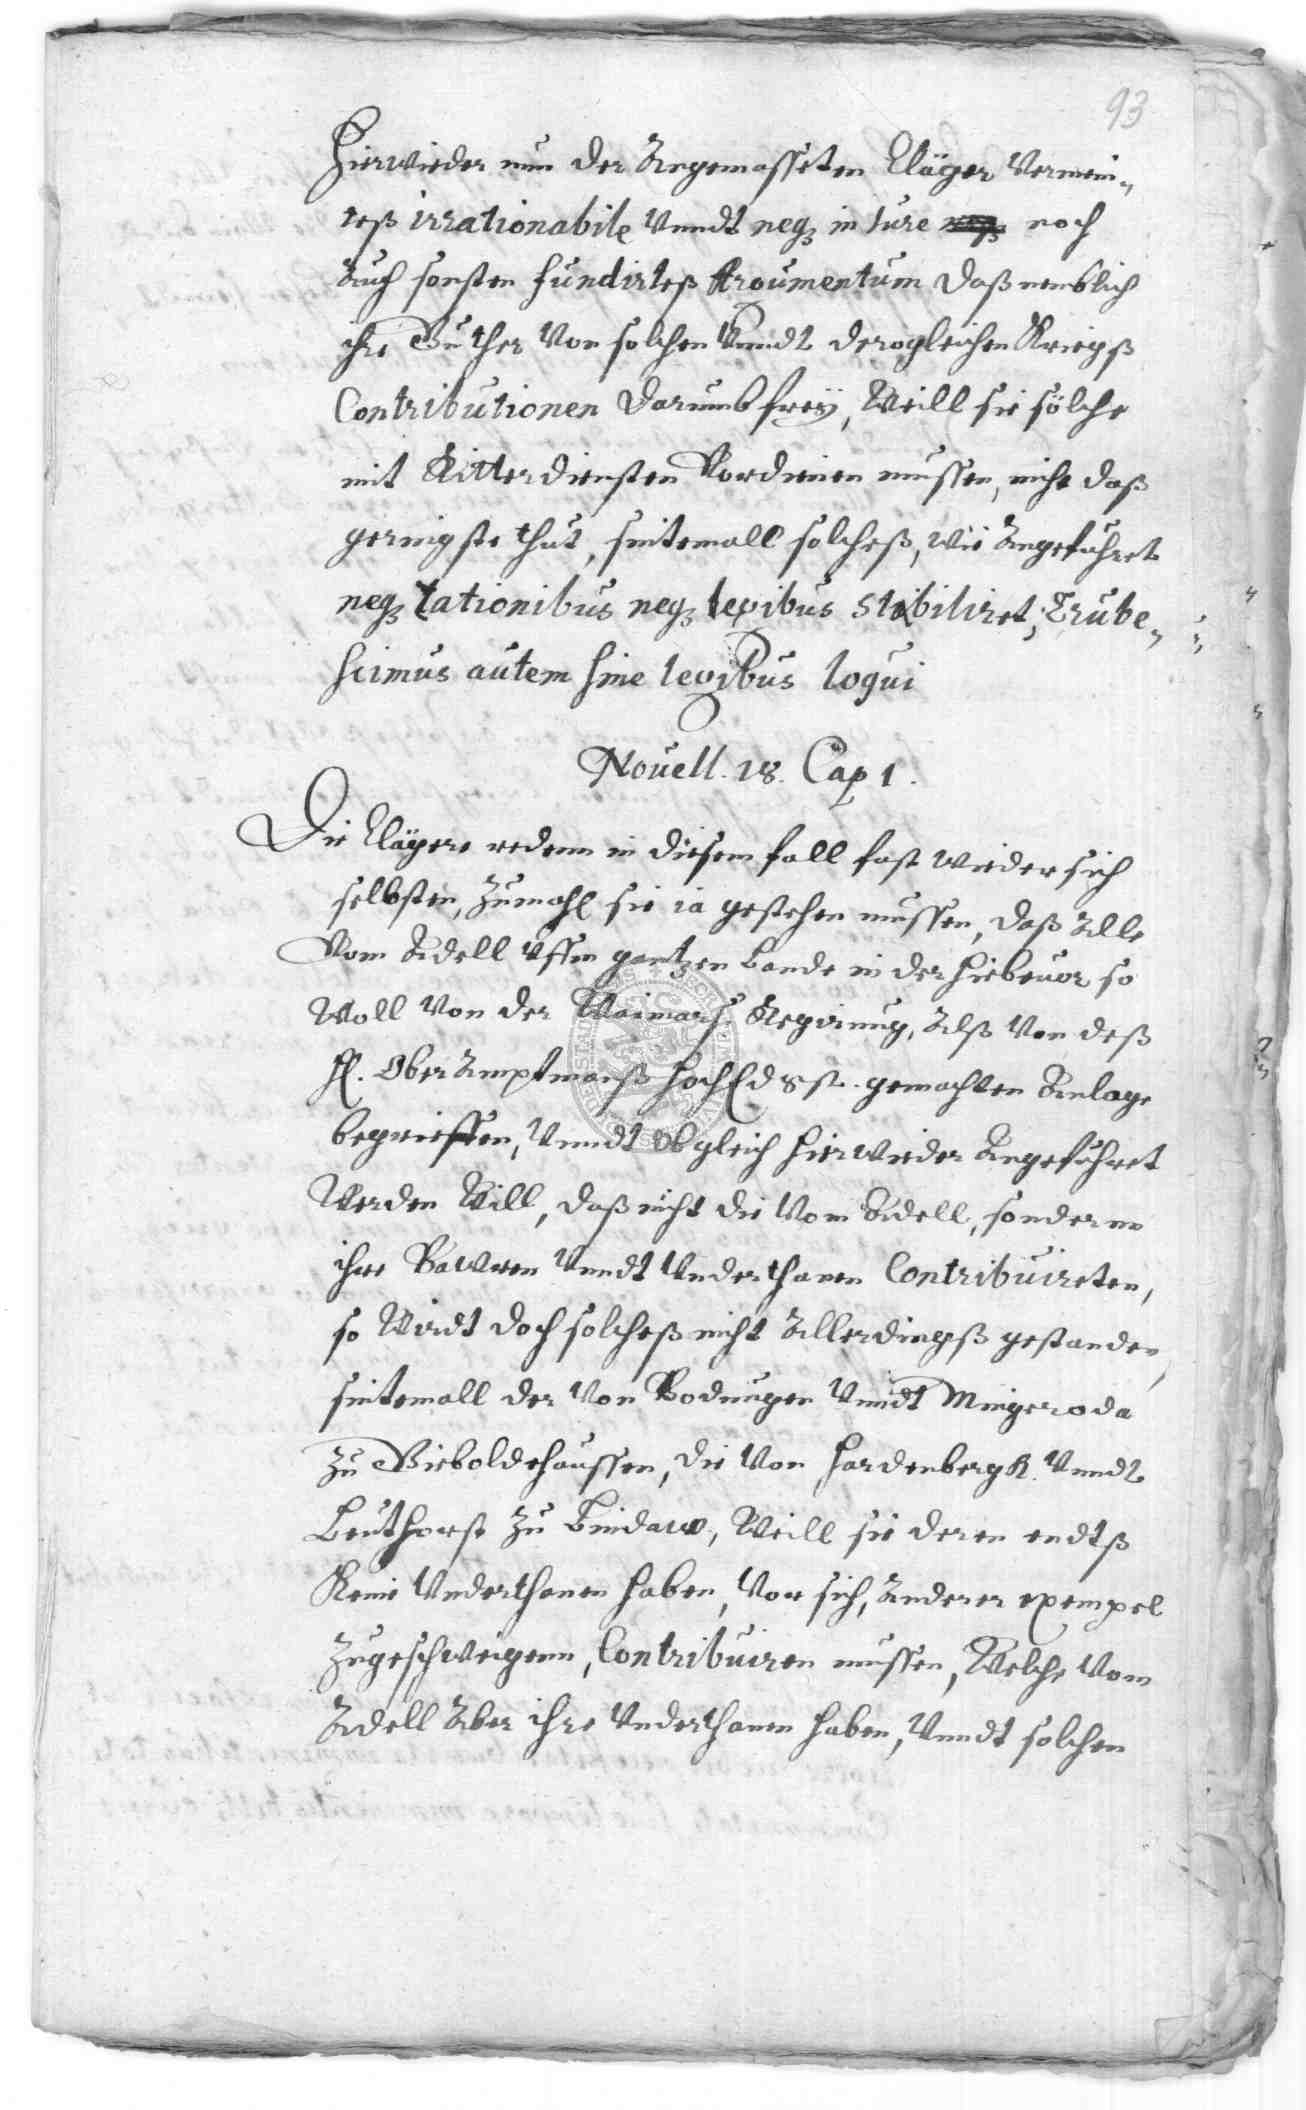 93
Hierwieder nun der Angemasseten Kläger Vermein„
teß irrationabile Vnndt neq3 in iure noch
Auch sonsten fundirteß Argumentum daß nemblich
ihre Güther Von solchen Vnndt dergleichen Kriegß
Contributionen darumb freÿ, Weill sie solche
mit Ritterdiensten Verdienen mussen, nicht daß
geringste thut, sintemall solcheß, wie Angefuhret
neq3 rationibus neq3 legibus stabiliret, Erube„
scimus autem sine legibus loqui
Nouell. 18. Cap 1.
Die Klägere redenn in diesem fall fast wieder sich
selbsten, Zumahl sie ia gestehen mussen, daß Alle
Vom Adell Vffm gantzen Lande in der hiebeuor so
Woll Von der Weimars. Regirung, Alß Von deß
H. Ober Amptmanß HochEd gemachten Anlage
begrieffen, Vnndt Obgleich hierwieder Angefuhret
Werden Will, daß nicht die Vom Adell, sonderen
ihre Bawren Vnndt Vnderthanen Contribuireten,
so Wirdt doch solcheß nicht Allerdingß gestanden,
sintemall der Von Bodungen Vnndt Mingeroda
Zu Gieboldehaussen, die Von Hardenbergk Vnndt
Leuthorst Zu Lindaw, Weill sie deren endtß
Keine Vnderthanen haben, Vor sich, Anderer exempel
Zugeschweigenn, Contribuiren mussen, Welche Vom
Adell Aber ihre Vnderthanen haben, Vnndt solchen